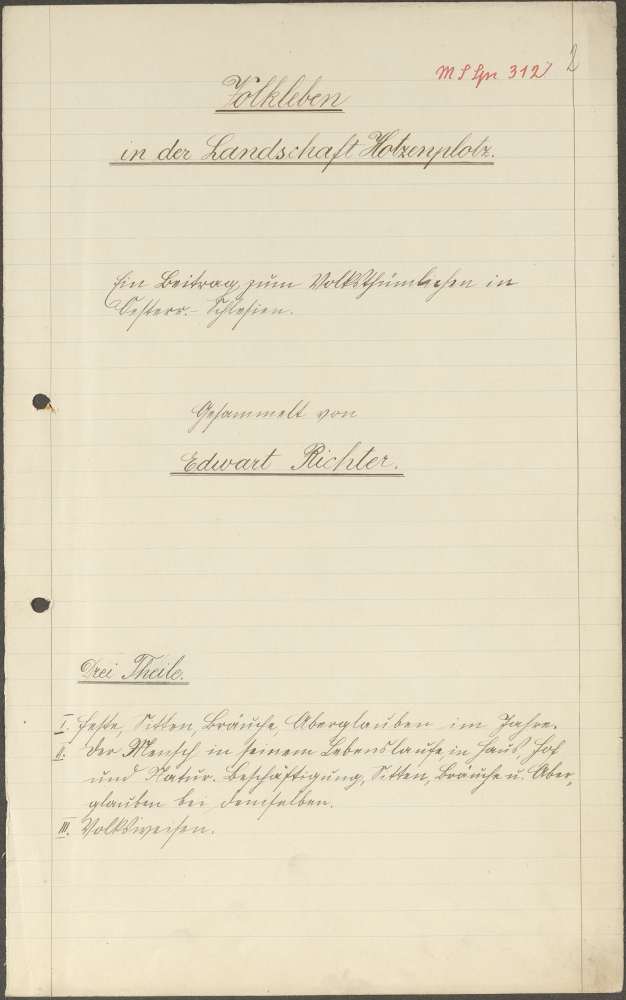 2
Volkleben
in der Landschaft Hotzenplotz.
Ein Beitrag zum Volksthümlichen in
Oesterr.-Schlesien.
Gesammelt von
Edwart Richter.
Drei Theile.
I. Feste, Sitten, Bräuche, Aberglauben im Jahre.
II. Der Mensch in seinem Lebenslaufe, in Haus, Hof
und Natur. Beschäftigung, Sitten, Bräuche u. Aber-
glauben bei demselben.
III. Volksweisen.